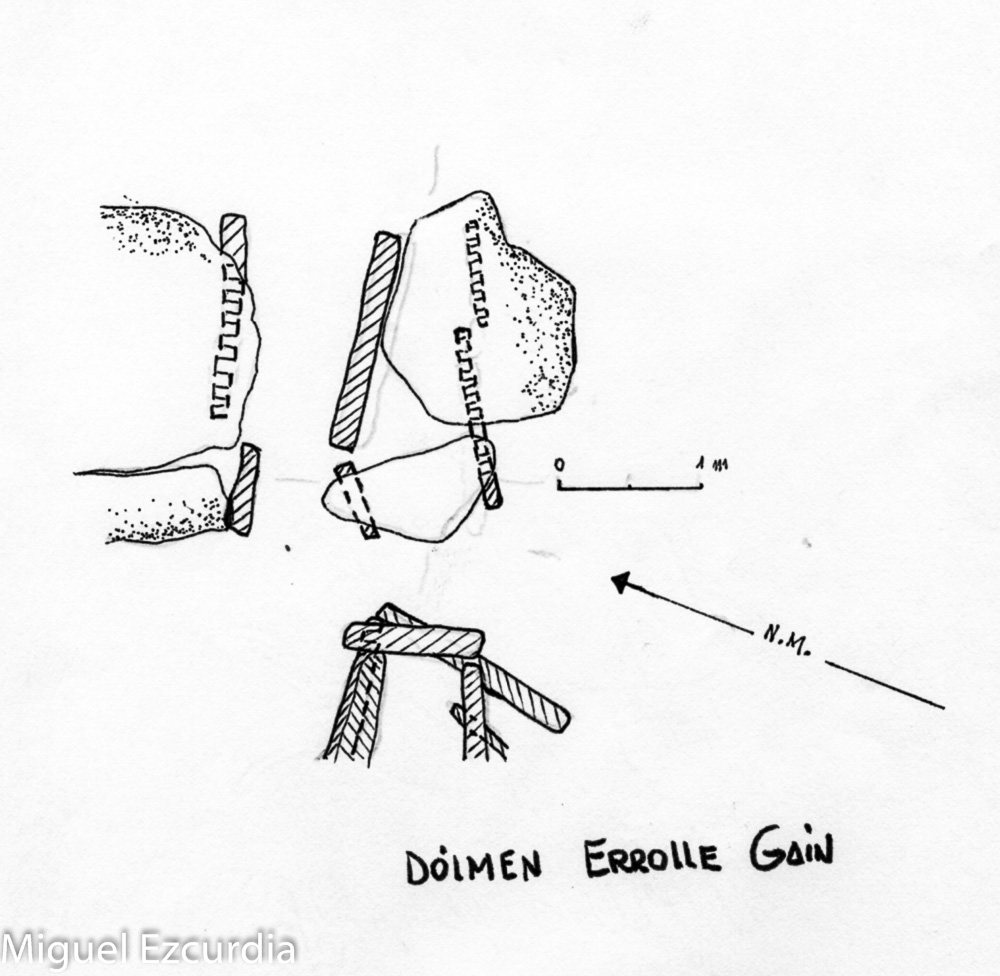 0 1 m
N.M.
DOLMEN ERROLLE GAIN
Miguel Ezcurdia